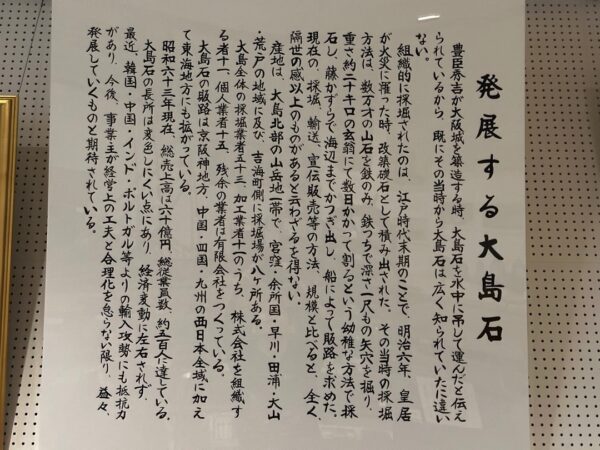 発展する大島石
豊臣秀吉が大阪城を築造する時、大島石を水中に吊して運んだと伝え
られているから、既にその当時から大島石は広く知られていたに違い
ない。
組織的に採掘されたのは、江戸時代末期のことで、明治六年、皇居
が火災に罹った時、改築礎石として積み出された。その当時の採掘
方法は、数万才の山石を鉄のみ、鉄つちで深さ一尺もの矢穴を掘り、
重さ約二十キロの玄翁にて数日かかって割るという幼稚な方法で採
石し、藤かずらで海辺までかつぎ出し、船によって販路を求めた。
現在の、採掘、輸送、宣伝販売等の方法、規模と比べると、全く、
隔世の感以上のものがあると云わざるを得ない。
産地は、大島北部の山岳地一帯で、宮窪・余所国・早川・田浦・大山
・荒戸の地域に及び、吉海町側に採掘場が八ヶ所ある。
大島全体の採掘業者五十三、加工業者十一のうち、株式会社を組織す
る者十一、個人業者十五、残余の業者は有限会社をつくっている。
大島石の販路は京阪神地方、中国・四国・九州の西日本全域に加え
て東海地方にも拡がっている。
昭和六十三年現在、総売上高は六十億円、総従業員数、約五百人に達している。
大島石の長所は変色しにくい点にあり、経済変動に左右されず、
最近、韓国・中国・インド・ポルトガル等よりの輸入攻勢にも抵抗力
があり、今後、事業主が経営上の工夫と合理化を怠らない限り、益々、
発展していくものと期待されている。